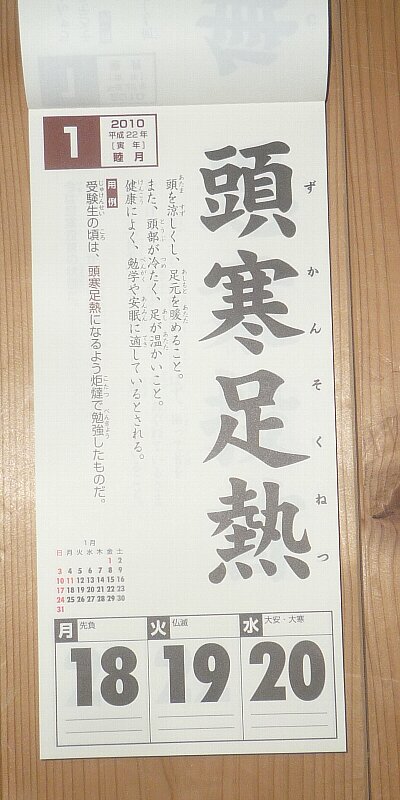 1
2010
平成22年
[寅年]
睦月
頭寒足熱
ずかんそくねつ
頭を涼しくし、足元を暖めること。
また、頭部が冷たく、足が温かいこと。
健康によく、勉学や安眠に適しているとされる。
用例
受験生の頃は、頭寒足熱になるよう炬燵で勉強したものだ。
1月
日 月 火 水 木 金 土
1 2
3 4 5 6 7 8 9
10 11 12 13 14 15 16
17 18 19 20 21 22 23
24 25 26 27 28 29 30
31
月 先負
18
火 仏滅
19
水 大安・大寒
20